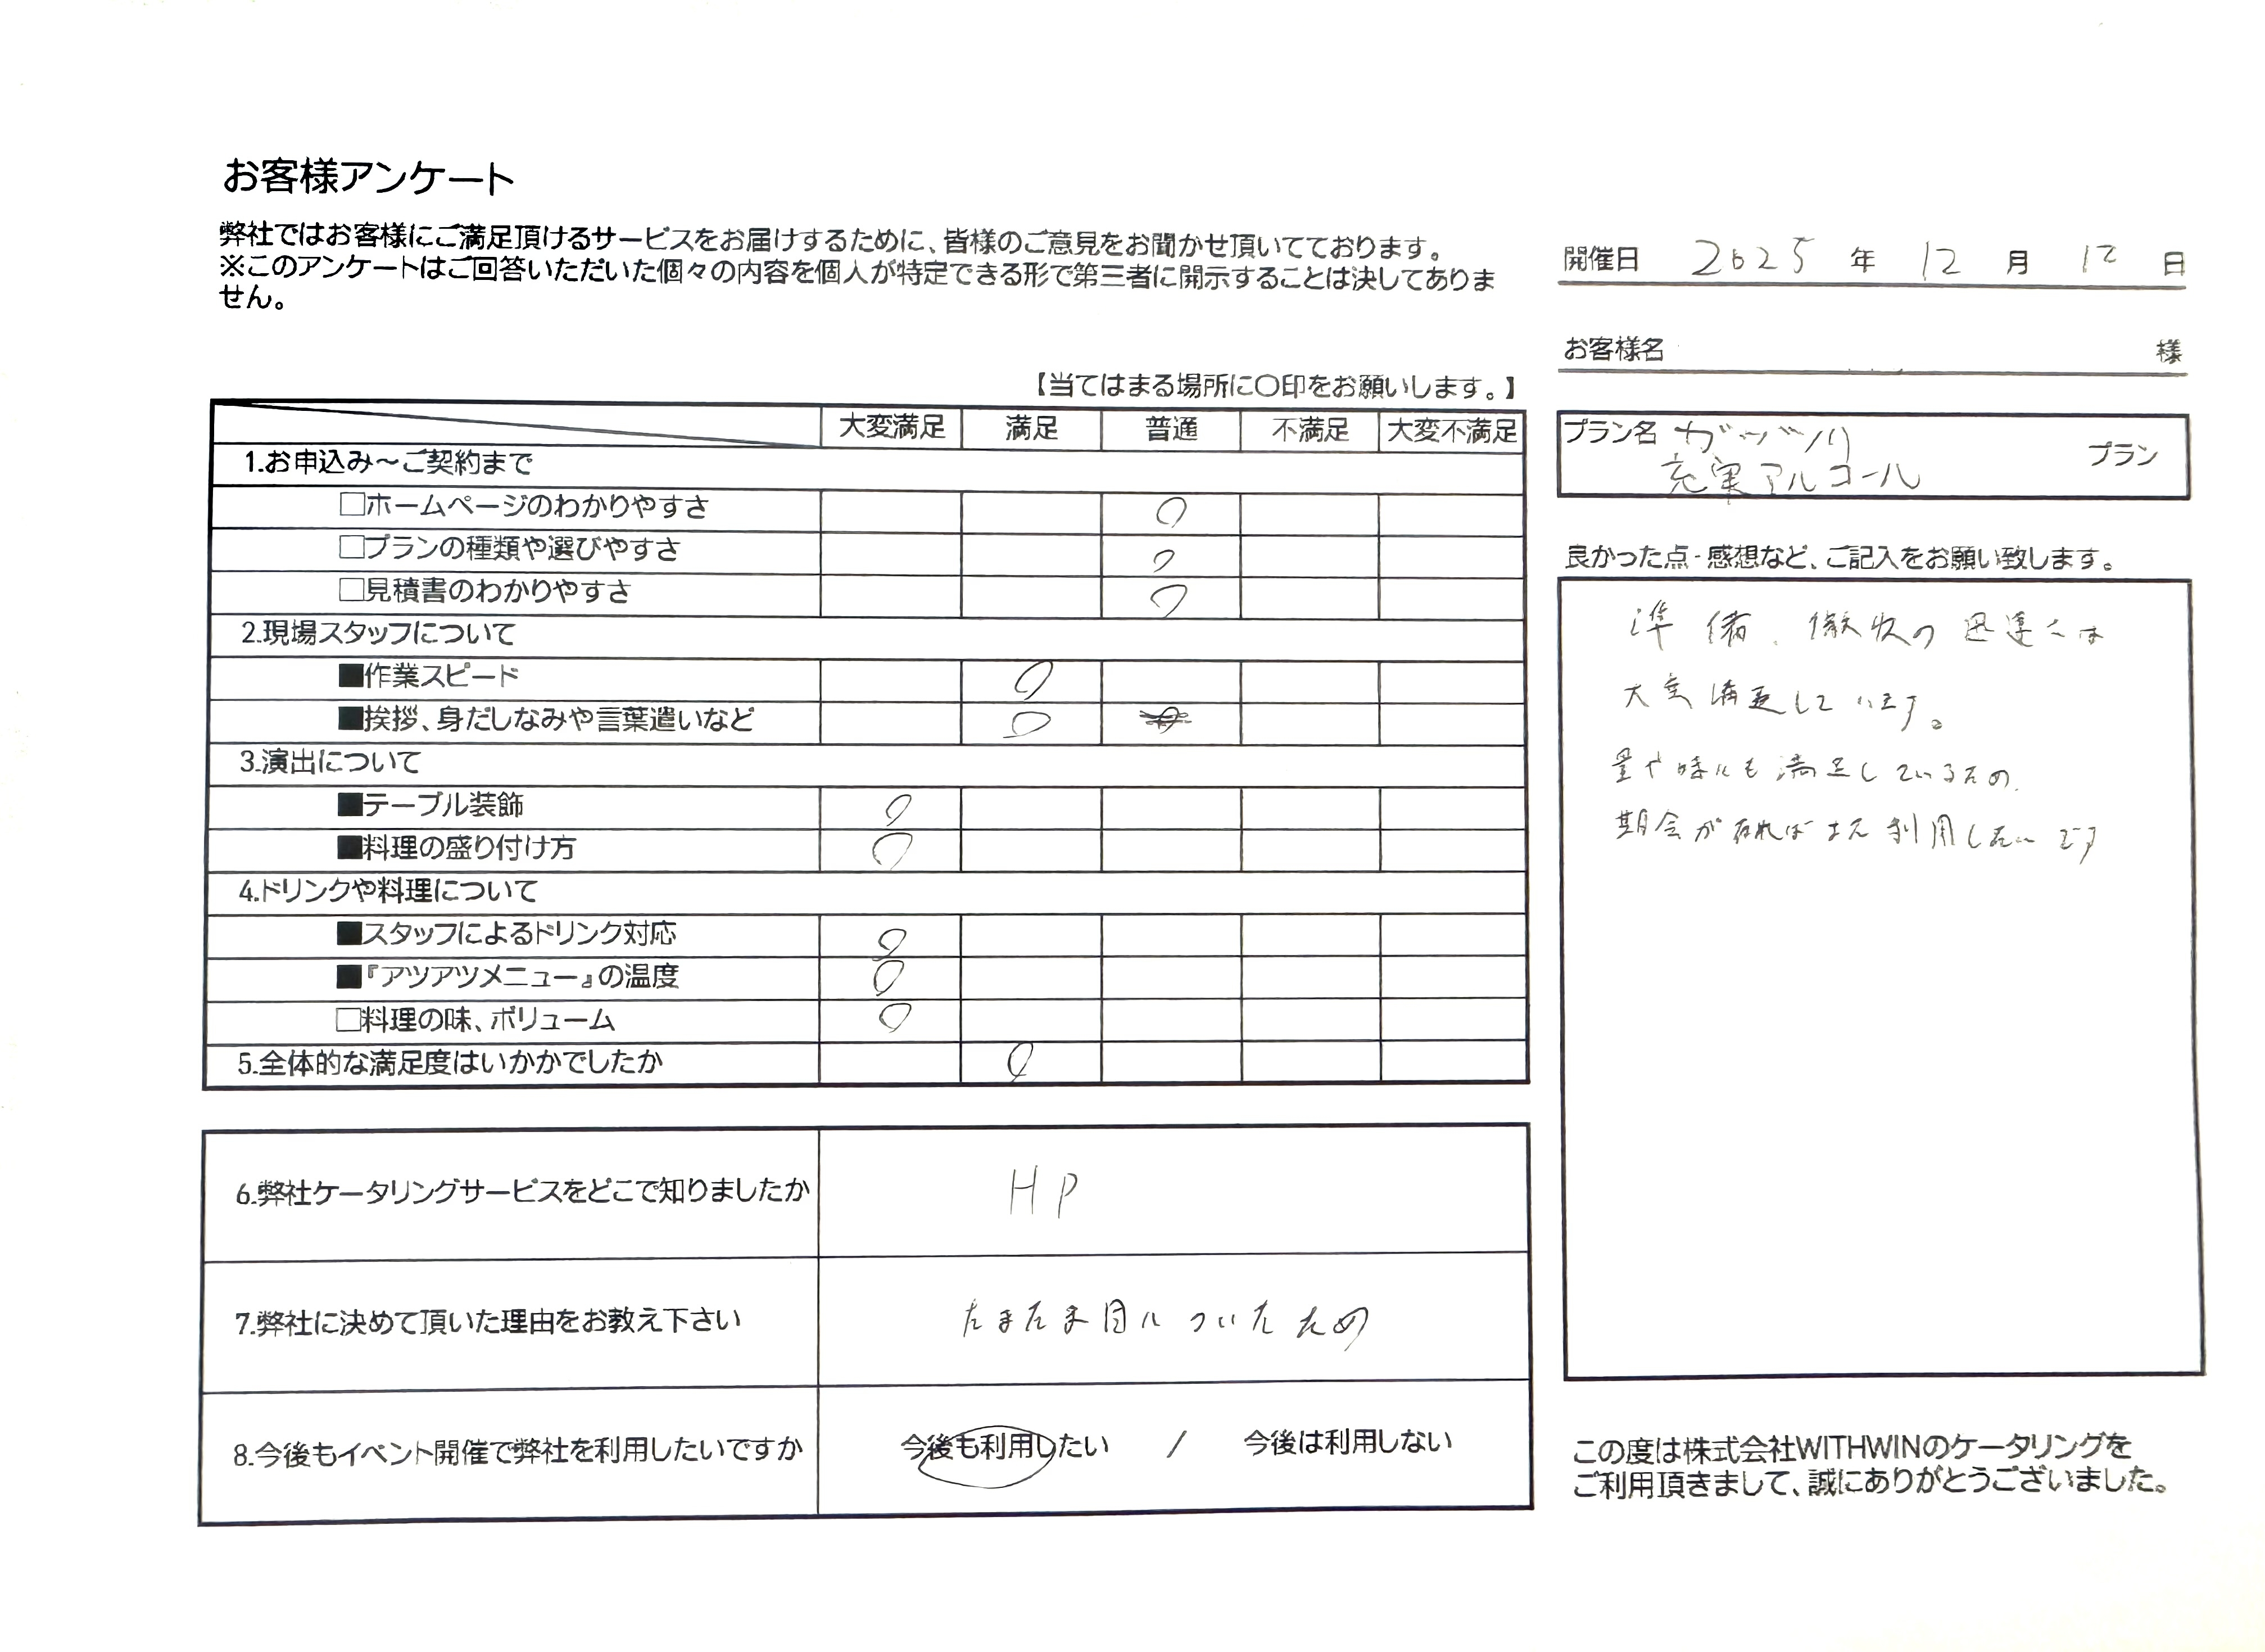 お客様アンケート
弊社ではお客様にご満足頂けるサービスをお届けするために、皆様のご意見をお聞かせ頂いてております。
※このアンケートはご回答いただいた個々の内容を個人が特定できる形で第三者に開示することは決してありま
せん。
開催日 2025 年 12 月 12 日
お客様名 様
【当てはまる場所に〇印をお願いします。】
プラン名 ガッツリ
充実アルコール プラン
大変満足 満足 普通 不満足 大変不満足
1.お申込み～ご契約まで
□ホームページのわかりやすさ ○
□プランの種類や選びやすさ ○
□見積書のわかりやすさ ○
2.現場スタッフについて
■作業スピード ○
■挨拶、身だしなみや言葉遣いなど ○
3.演出について
■テーブル装飾 ○
■料理の盛り付け方 ○
4.ドリンクや料理について
■スタッフによるドリンク対応 ○
■『アツアツメニュー』の温度 ○
□料理の味、ボリューム ○
5.全体的な満足度はいかかでしたか ○
6.弊社ケータリングサービスをどこで知りましたか HP
7.弊社に決めて頂いた理由をお教え下さい たまたま目についたため
8.今後もイベント開催で弊社を利用したいですか 今後も利用したい / 今後は利用しない
良かった点・感想など、ご記入をお願い致します。
準備、撤収の迅速さは
大変満足しています。
量や味にも満足しているため、
期会が有ればまた利用したいです
この度は株式会社WITHWINのケータリングを
ご利用頂きまして、誠にありがとうございました。